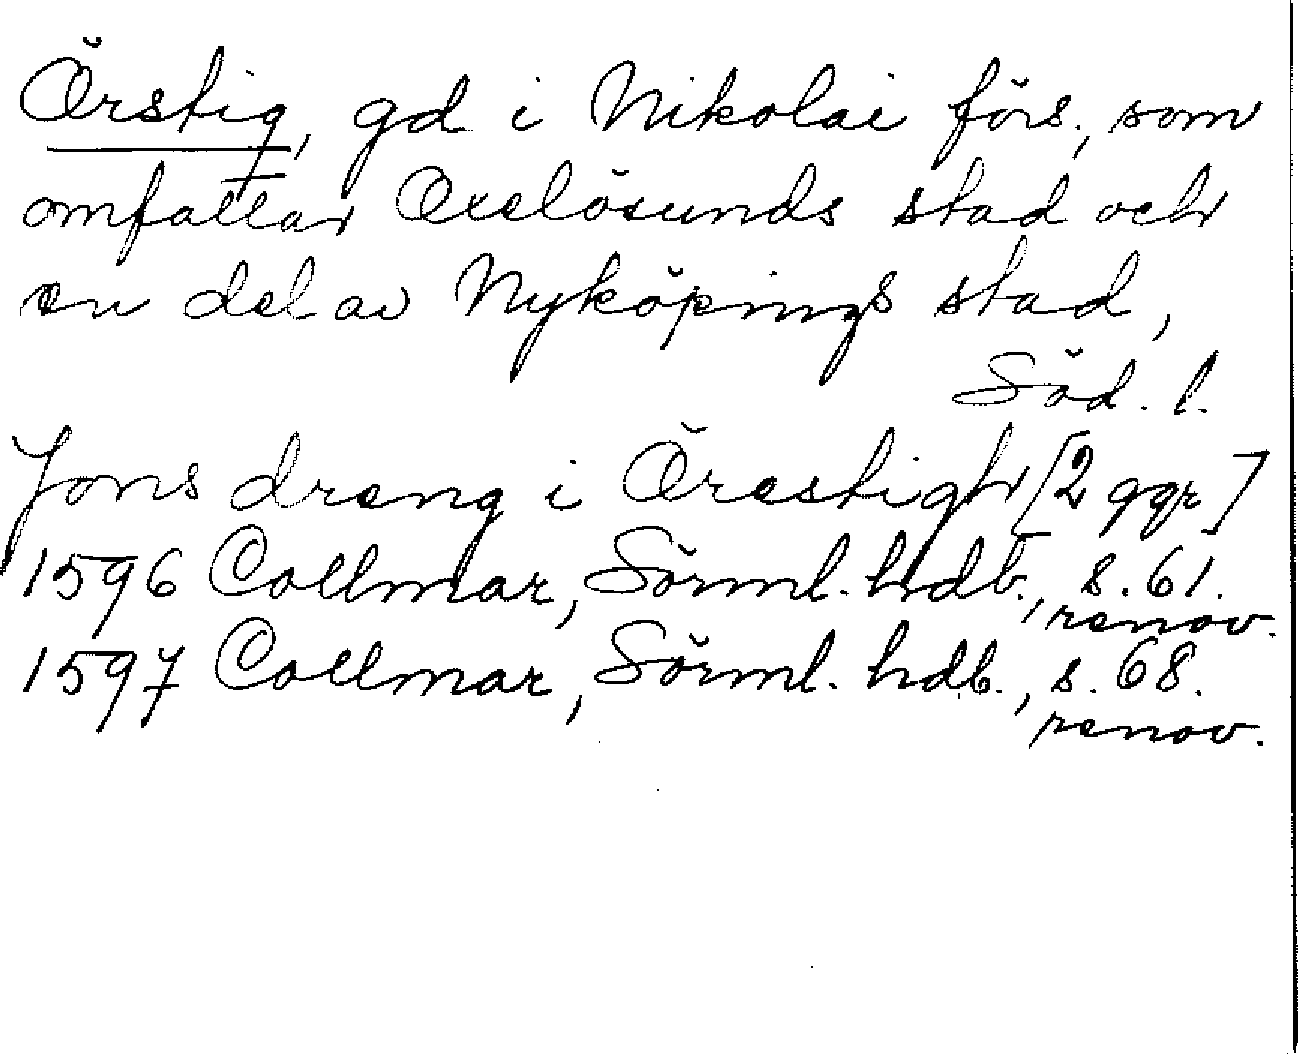 Örstig, gd i Nikolai förs., som
omfattar Oxelösunds stad och
en del av Nyköpings stad,
Söd. l.
Jons dreng i Örestigh [2 ggr]
1596 Collmar, Sörml. hdb., s. 61.
renov.
1597 Collmar, Sörml. hdb., s. 68.
renov.